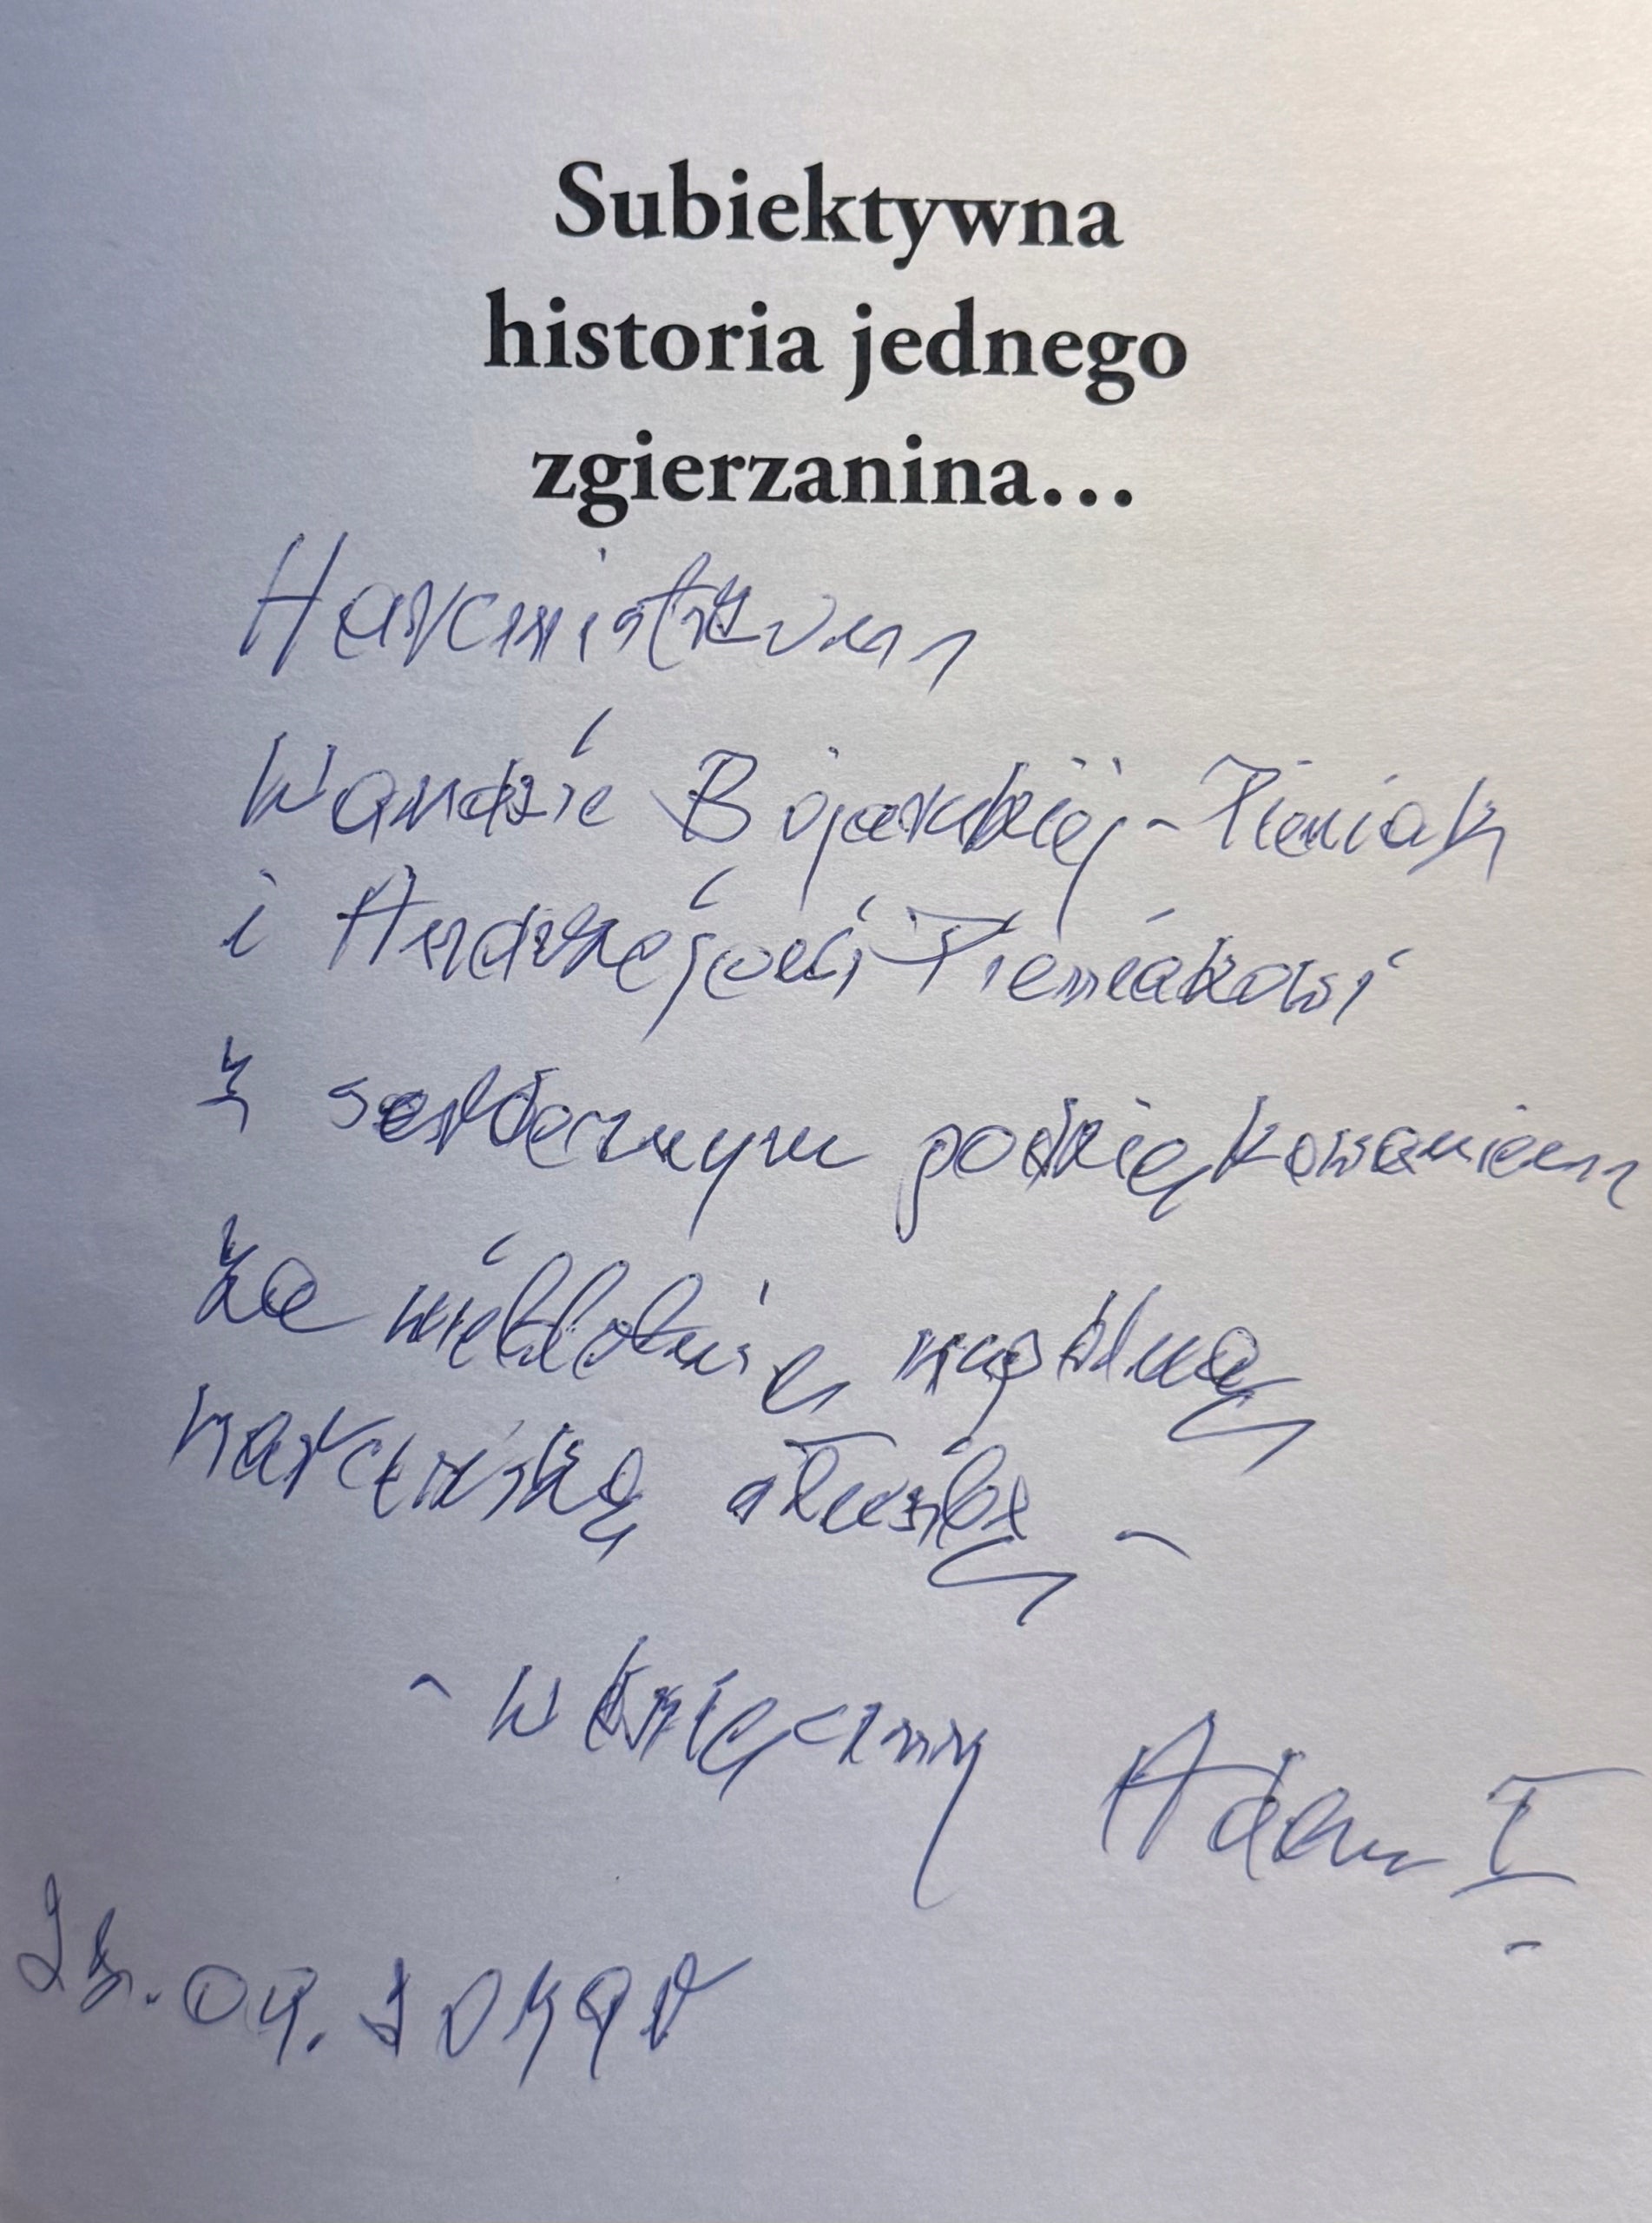 Subiektywna
historia jednego
zgierzanina...
Harcmistrzom
Wandzie Bojarskiej-Pieniak
i Andrzejowi Pieniakowi
z serdecznym podziękowaniem
za wieloletnią wspólną
harcerską służbę -
- wdzięczny Adam